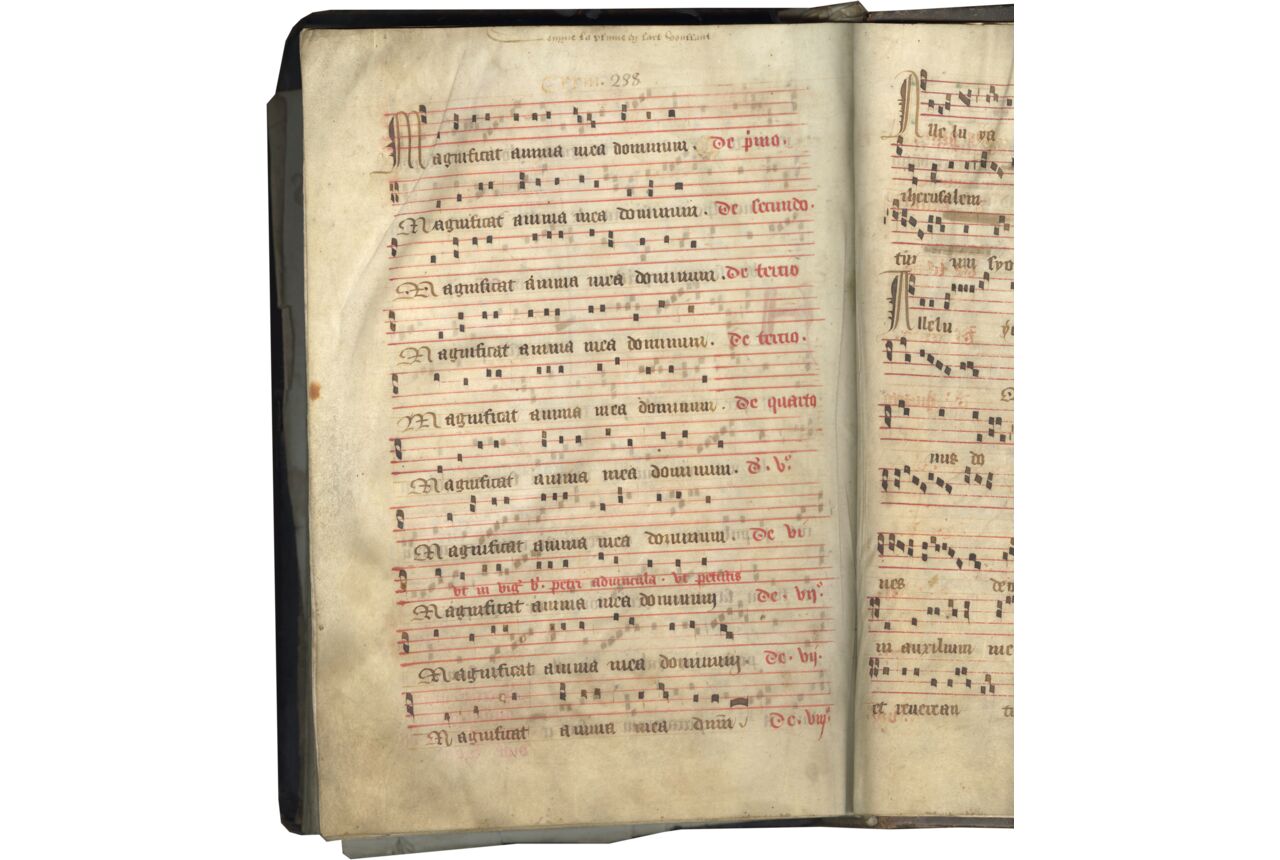 288
Magnificat anima mea dominum. De p̄mo.
Magnificat anima mea dominum. De secundo.
Magnificat anima mea dominum. De tertio
Magnificat anima mea dominum. De tertio.
Magnificat anima mea dominum. De quarto
Magnificat anima mea dominum. D̄. vͦ.
Magnificat anima mea dominum. De vi
vt in viḡ b̄. petri aduincula. vt petistis
Magnificat anima mea dominum De. vijͦ.
Magnificat anima mea dominum De. vij.
Magnificat anima mea dnm̄. De. viijͦ
Alle lu ya
iherusalem
Allelu
nus do
nes
in auxilium me
et reuerean